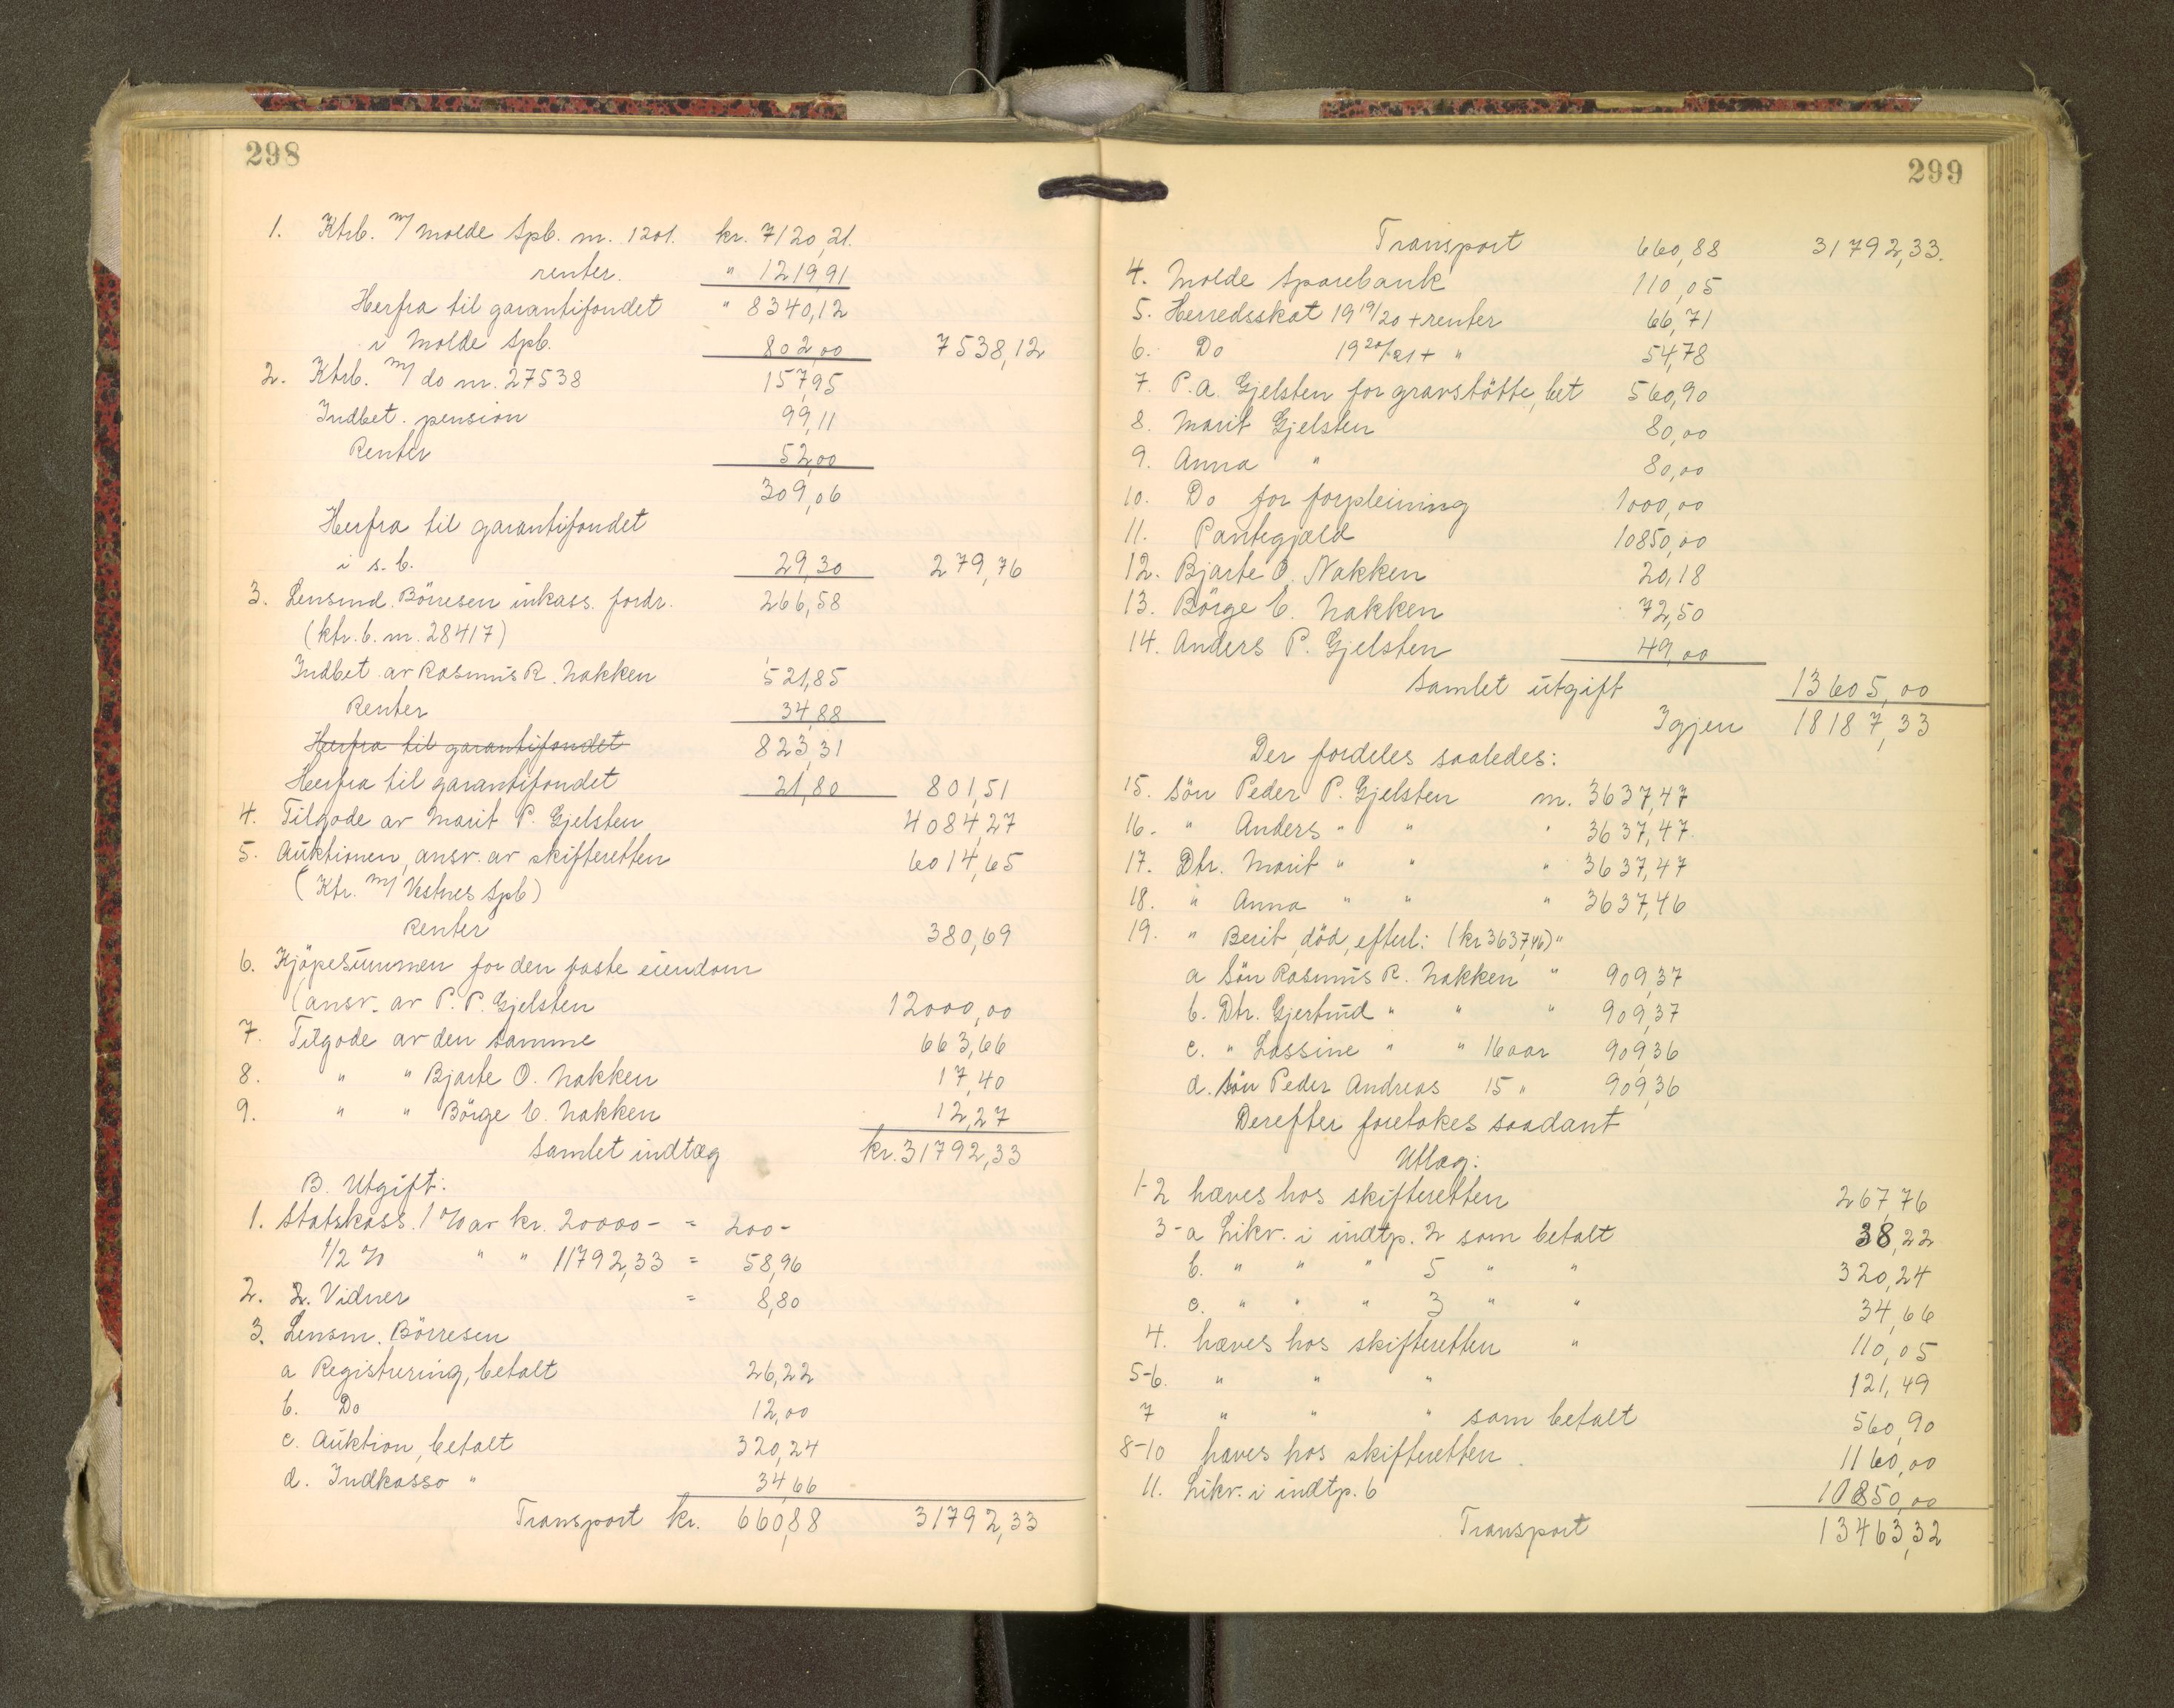 298
1. Ktrb. m/ Molde Spb. nr. 1201. kr. 7120,21.
renter. " 1219,91
Herfra til garantifondet " 8340,12
i Molde Spb. 802,00 7538,12
2. Ktrb. m/ do nr. 27538 157,95
Indbet. pension 99,11
Renter 52,00
309,06
Herfra til garantifondet
i s. b. 29,30 279,76
3. Lensmd. Börresen inkass. fordr. 266,58
(ktr. b. nr. 28417)
Indbet. av Rasmus R. Nakken 521,85
Renter 34,88
Herfra til garantifondet 823,31
Herfra til garantifondet 21,80 801,51
4. Tilgode av Marit P. Gjelsten 4084,27
5. Auktionen, ansv. av skifteretten 6014,65
(Ktr. m/ Vestnes Spb)
Renter 380,69
6. Kjöpesummen for den faste eiendom
(ansv. av P. P. Gjelsten 12000,00
7. Tilgode av den samme 663,66
8. " " Bjarte O. Nakken 17,40
9. " " Börge E. Nakken 12,27
Samlet indtæg kr. 31792,33
B. Utgift:
1. Statskass. 1 % av kr. 20000 - = 200 -
1/2 % " " 11792,33 = 58,96
2. 2. Vidner = 8,80
3. Lensm. Börresen
a Registrering, betalt 26,22
b. Do 12,00
c. Auktion, betalt 320,24
d. Indkasso " 34,66
Transport kr. 660,88 31792,33
299
Transport 660,88 31792,33.
4. Molde Sparebank 110,05
5. Herredsskat 19 19/20 + renter 66,71
6. Do 19 20/21 + " 54,78
7. P. A. Gjelsten for gravstötte, bet 560,90
8. Marit Gjelsten 80,00
9. Anna " 80,00
10. Do for forpleining 1000,00
11. Pantegjæld 10850,00
12. Bjarte O. Nakken 20,18
13. Börge E. Nakken 72,50
14. Anders P. Gjelsten 49,00
Samlet utgift 13605,00
Igjen 18187,33
Der fordeles saaledes:
15. Sön Peder P. Gjelsten m. 3637,47
16. " Anders " " " 3637,47.
17. Dtr. Marit " " " 3637,47
18. " Anna " " " 3637,46
19. " Berit, död, efterl: (kr 3637,46) "
a Sön Rasmus R. Nakken " 909,37
b. Dtr. Gjertrud " " " 909,37
c. " Lassine " " 16 aar 909,36
d. Sön Peder Andreas 15 " 909,36
Derefter foretokes saadant
Utlæg:
1-2 hæves hos skifteretten 267,76
3-a Likv. i indtp. 2 som betalt 38,22
b. " " " 5 " " 320,24
c. " " " 3 " " 34,66
4. hæves hos skifteretten " 110,05
5-6. " " " 121,49
7 " " " som betalt 560,90
8-10 hæves hos skifteretten. 1160,00
11. Likv. i indtp. 6 10850,00
Transport 13463,32